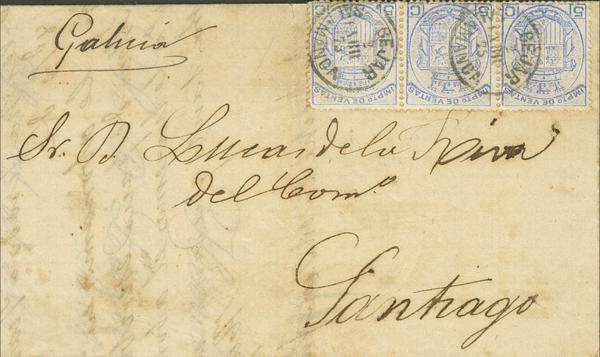 Galicia
5 C 5 C 5 C
IMPTO DE VENTAS IMPTO DE VENTAS IMPTO DE VENTAS
BEJAR BEJAR
Sr. D. Lucas de la Riva
del Com.º
Santiago